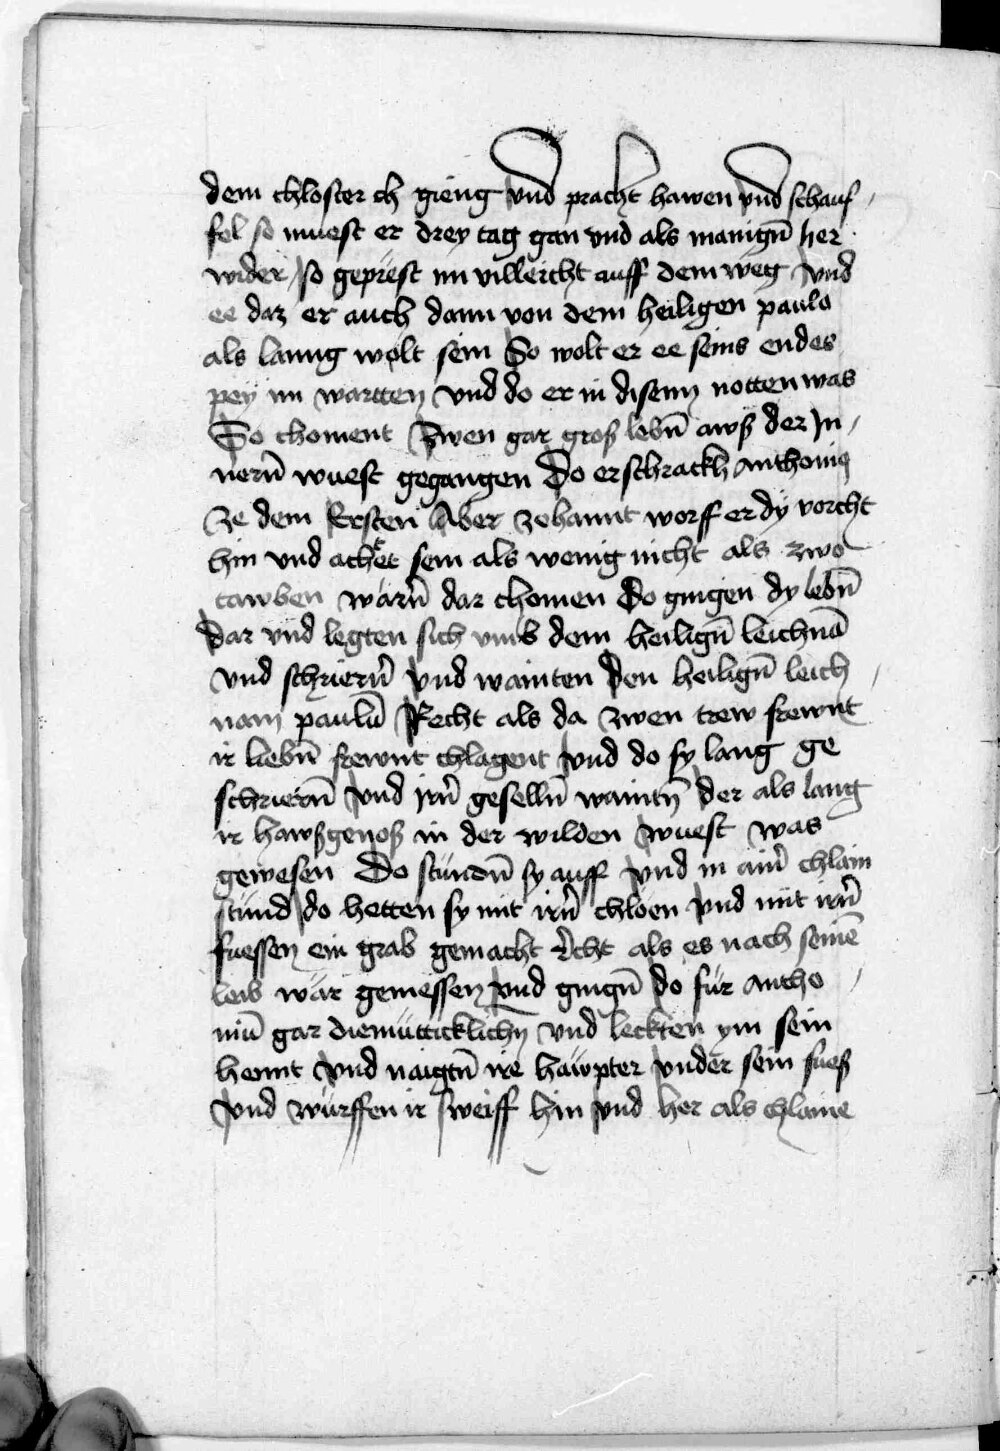 dem chloster ch gieng vnd pracht hawen vnd schauf-
fel so muest er drey tag gan vnd als manign̄ her
wider / so geprest im villeicht auff dem weg vnd
ee daz er auch dann von dem heiligen paulo
als lanng wolt sein So wolt er ee seins endes
pey im wartten vnd do er in disenn notten was
So choment Zwen gar gross lebn̄ awss der Jn-
nern̄ wuest gegangen Do erschrackh Anthonig
ze dem Ersten Aber zehannt worff er dÿ vorcht
hin vnd achet sein als wenig nicht als zwo
tawben wärn̄ dar chomen Do gingen dy lebn̄
dar vnd legten sich vmb dem heilign̄ leichnā
vnd schriern̄ vnd wainten den heilign̄ leich-
nam paulū Recht als da zwen trew frewnt
ir liebn̄ frewnt chlagent vnd do sy lang ge
schrieren̄ vnd irn̄ geselln̄ waintn̄ der als lang
ir hawssgenoss in der wilden wuest was
gewesen Do stundn̄ sy auff vnd in ain̄ chlain
stund do hetten sy mit irn̄ chloen vnd mit irn̄
fuessen ein grab gemacht Rcht als es nach seinē
leib wär gemessen vnd gingn̄ do fur Antho-
niū gar diemutticklichn̄ vnd leckten ym sein
hennt vnd naigtn̄ ire hawpter vnder sein fuess
vnd wurffen ir sweiff hin vnd her als chlaine